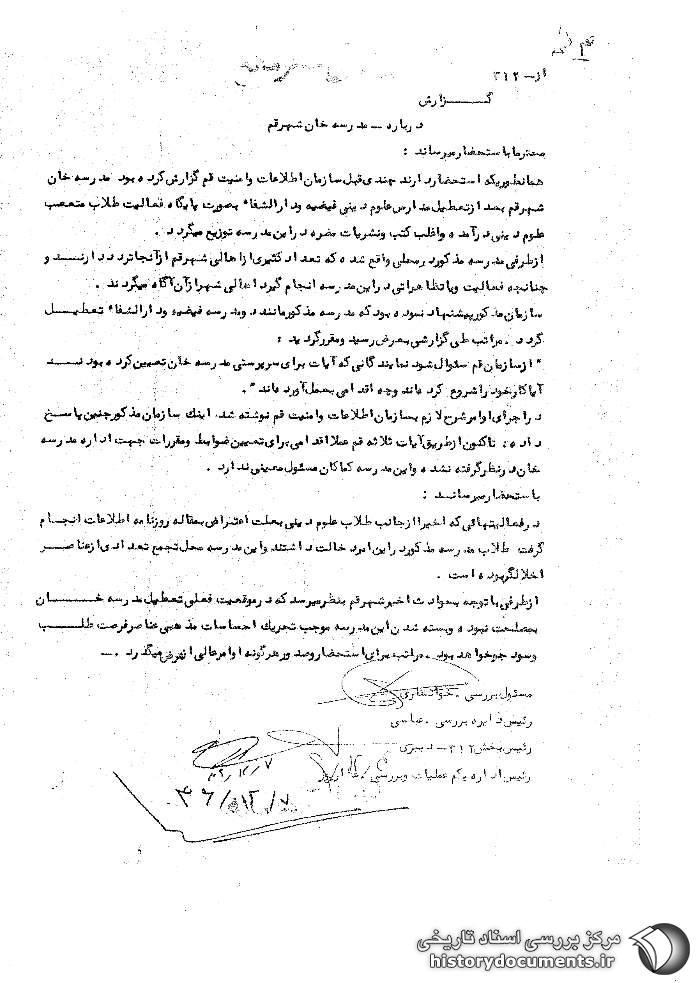 از- ۳۱۲
گـــزارش
درباره – مدرسه خان شهرقم
محترما باستحضار میرساند :
همانطوریکه استحضار دارند چندی قبل سازمان اطلاعات وامنیت قم گزارش کرده بود مدرسه خان
شهرقم بعد از تعطیل مدارس علوم دینی فیضیه ودارالشفاء بصورت پایگاه فعالیت طلاب متعصب
علوم دینی درآمده واغلب کتب ونشریات مضره دراین مدرسه توزیع میگردد .
ازطرفی مدرسه مذکور درمحلی واقع شده که تعداد کثیری ازاهالی شهرقم ازآنجا تردد دارنـد و
چنانچه فعالیت ویا تظاهراتی دراین مدرسه انجام گیرد اهالی شهر ازآن آگاه میگردند .
سازمان مذکور پیشنهاد نموده بود که مدرسه مذکور مانند دومدرسه فیضیه ودارالشفاء تعطیـل
گردد . مراتب طی گزارشی بعرض رسید ومقرر گردید :
" ازسازمان قم سئوال شود نمایندگانی که آیات برای سرپرستی مدرسه خان تعیین کرده بودنـد
آیا کارخود را شروع کرده اند وچه اقدامی بعمل آورده اند " .
دراجرای اوامر شرح لازم بسازمان اطلاعات وامنیت قم نوشته شد. اینک سازمان مذکور چنین پاسخ
داده : تاکنون ازطریق آیات ثلاثه قم عملا اقدامی برای تعیین ضوابط ومقررات جهت اداره مدرسه
خان درنظر گرفته نشده واین مدرسه کماکان مسئول معینی ندارد .
باستحضار میرسانـد :
درفعالیتهائی که اخیرا ازجانب طلاب علوم دینی بعلت اعتراض بمقاله روزنامه اطلاعات انجـام
گرفت طلاب مدرسه مذکور دراین امر دخالت داشتند واین مدرسه محل تجمع تعدادی ازعناصـر
اخلالگر بوده است .
ازطرفی باتوجه بحوادث اخیر شهرقم بنظر میرسد که درموقعیت فعلی تعطیل مدرسه خـــان
بمصلحت نبوده وبسته شدن این مدرسه موجب تحریک احساسات مذهبی عناصر فرصت طلـب
وسودجو خواهد بود . مراتب برای استحضار وصدور هرگونه اوامر عالی ازعرض میگذرد .ــ
مسئول بررسی . خوانساری
رئیس دایره بررسی . عباسی
رئیس بخش ۳۱۲ – دبیری
رئیس اداره یکم عملیات وبررسی
۳۶/۱۲/۷
۳۶/۱۲/۷
مرکز بررسی اسناد تاریخی
historydocuments.ir